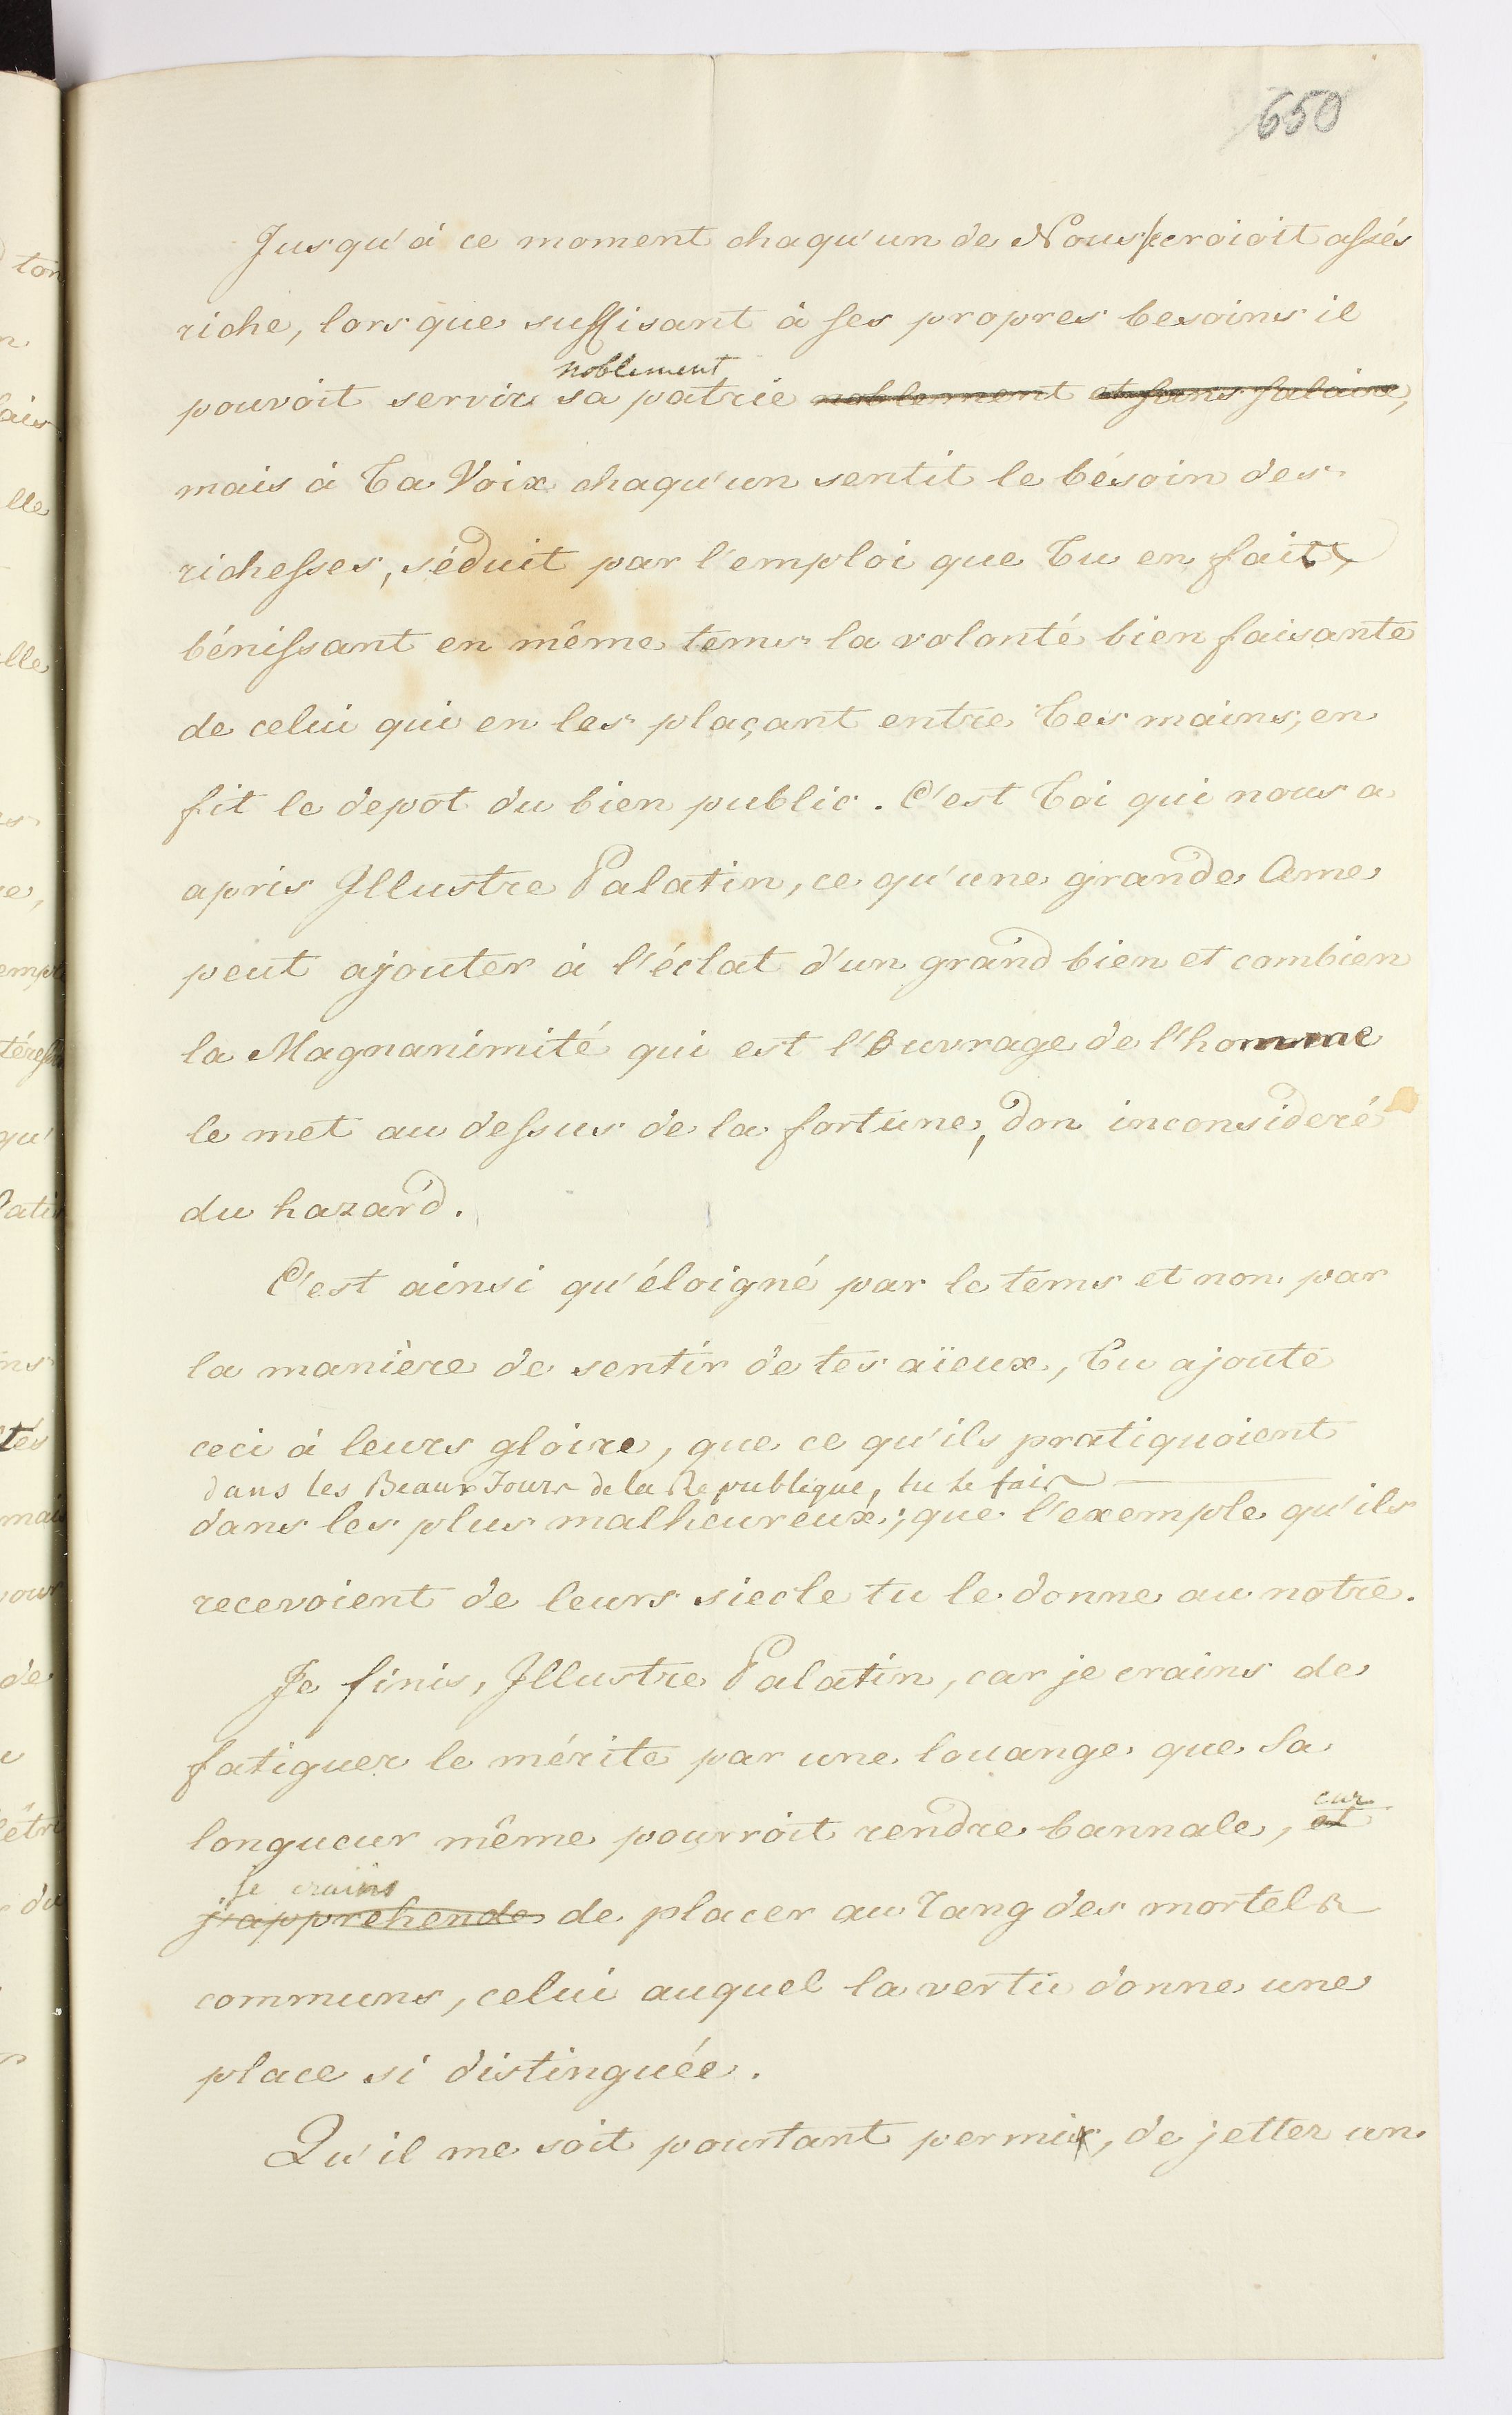 650
Jusqu'à ce moment chaqu'un de Nous se croioit assés
riche, lorsque suffisant à ses propres besoins il
noblement
pouvoit servir sa patrie noblement et sans salaire,
mais à Ta Voix chaqu'un sentit le bésoin des
richesses, séduit par l'emploi que Tu en fait,
bénissant en même tems la volonté bien faisante
de celui qui en les plaçant entre Tes mains, en
fit le depot du bien public. C'est Toi qui nous a
apris Illustre Palatin, ce qu'une grande Ame
peut ajouter à l'éclat d'un grand bien et combien
la Magnanimité qui est l'Ouvrage de l'homme
le met au dessus de la fortune, don inconsideré
du hazard.
C'est ainsi qu'éloigné par le tems et non par
la manière de sentir de tes aïeux, Tu ajoute
ceci à leurs gloire, que ce qu'ils pratiquoient
dans les Beaux Jours de la Republique, tu le fais
dans les plus malheureux; que l'exemple qu'ils
recevoient de leurs siecle tu le donne au notre.
Je finis, Illustre Palatin, car je crains de
fatiguer le mérite par une louange que sa
longueur même pourroit rendre bannale, et
car
je crains
j'apprehende de placer au rang des mortels
communs, celui auquel la vertu donne une
place si distinguée.
Qu'il me soit pourtant permis, de jetter un